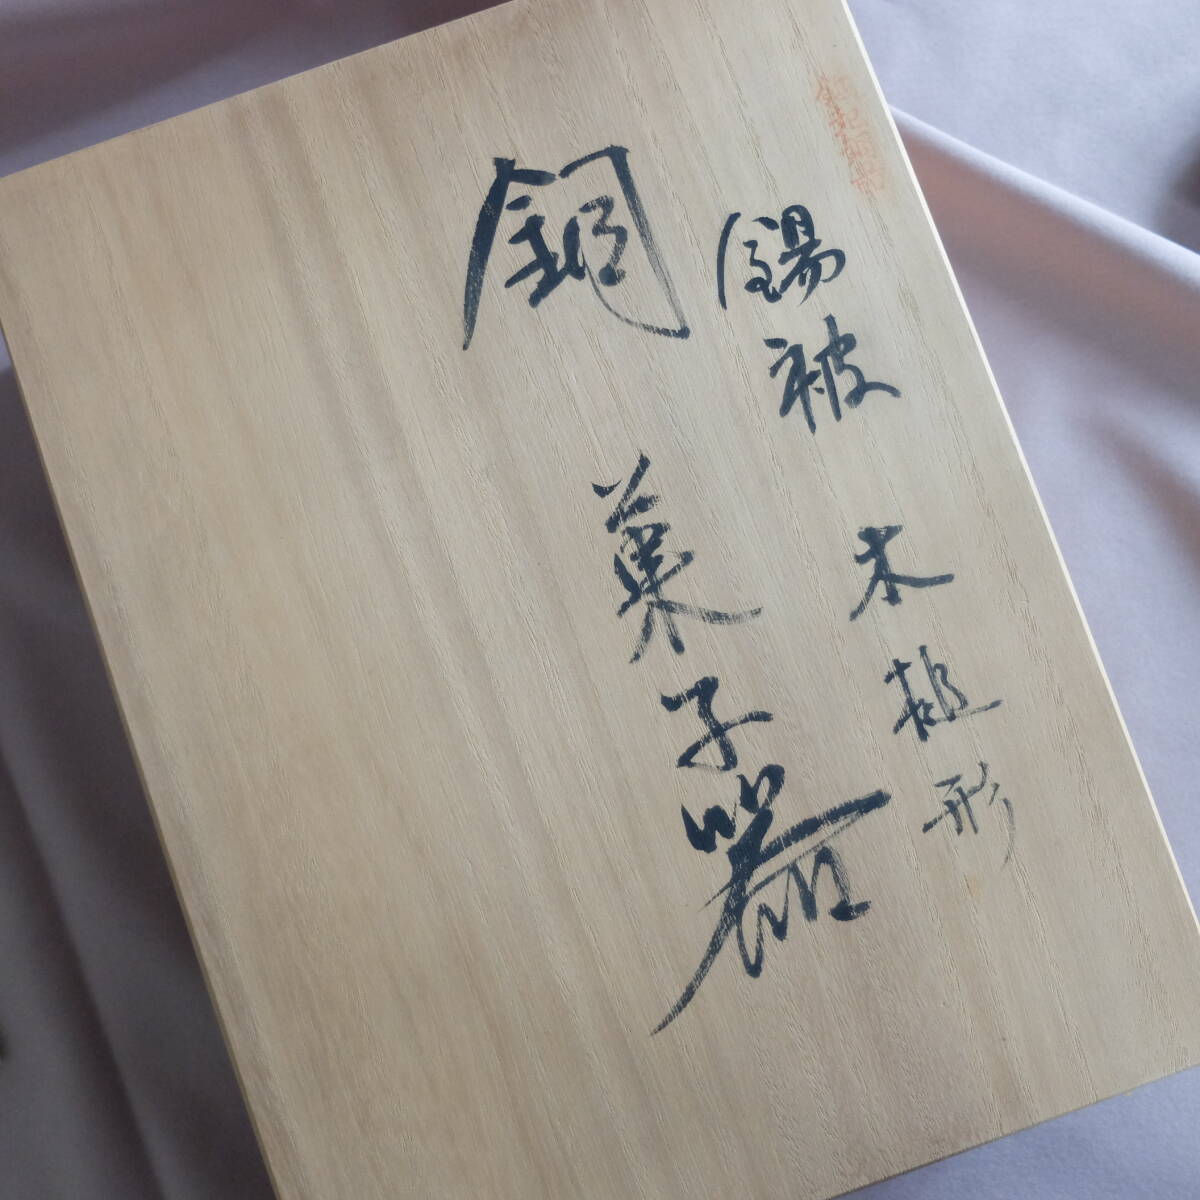 錫被 木槌形
銅 菓子器